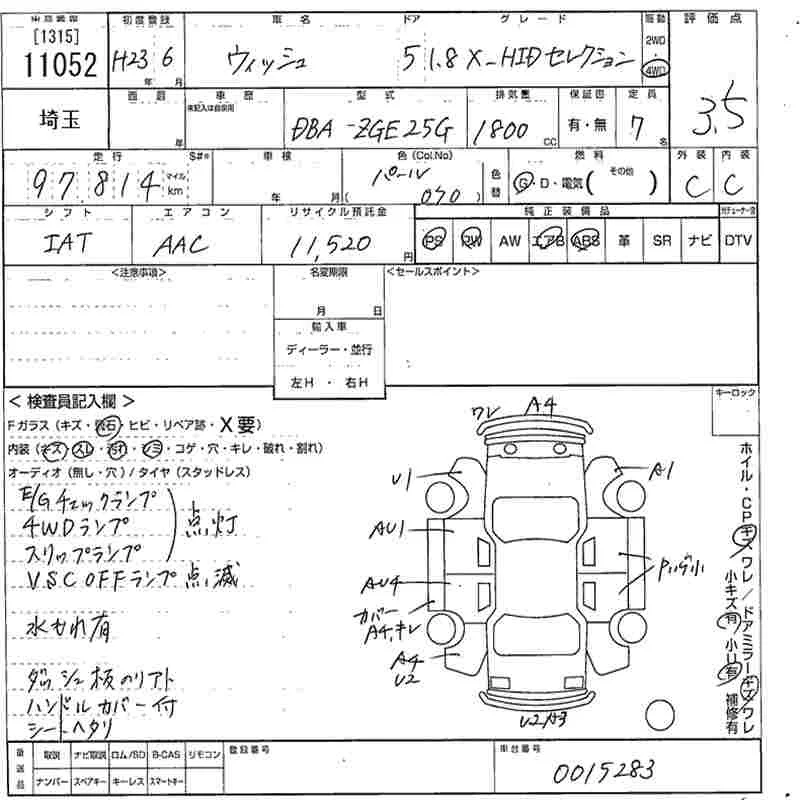 [1315]
11052
初度登録
車名
ドア
グレード
駆動
評価点
H23 6
年 月
ウィッシュ
5
1.8 X_HIDセレクション
2WD
・
4WD
3.5
埼玉
年
車歴
未記入は自家用
型式
排気量
保証書
定員
DBA-ZGE25G
1800
cc
有・無
7
名
走行
S#*
車検
色(Col.No)
燃料
外装
内装
97,814
マイル
km
年 月
パール
( 070 )
色替
G・D・電気( その他 )
C
C
シフト
エアコン
リサイクル預託金
純正装備品
IAT
AAC
11,520
円
PS
PW
AW
エアB
ABS
革
SR
ナビ
DTV
<注意事項>
名変期限
<セールスポイント>
月 日
輸入車
ディーラー・並行
左H ・ 右H
<検査員記入欄>
キーロック
Fガラス(キズ・飛石・ヒビ・リペア跡・X要)
内装(キズ・スレ・汚れ・シミ・コゲ・穴・キレ・破れ・割れ)
オーディオ(無し・穴)/タイヤ(スタッドレス)
E/Gチェックランプ
4WDランプ
スリップランプ
点灯
VSC OFFランプ点滅
水もれ有
ダッシュ板のリアト
ハンドルカバー付
シートヘタリ
ワレ
A4
U1
A1
AU1
AU4
カバー
A4,キレ
A4
U2
U2/A3
ホイル・CPキズワレ/ドアミラーキズワレ
小キズ有 小U有 補修有
後送品
取説
ナビ取説
ロム/SD
B-CAS
リモコン
ナンバー
スペアキー
キーレス
スマートキー
登録番号
車台番号
0015283